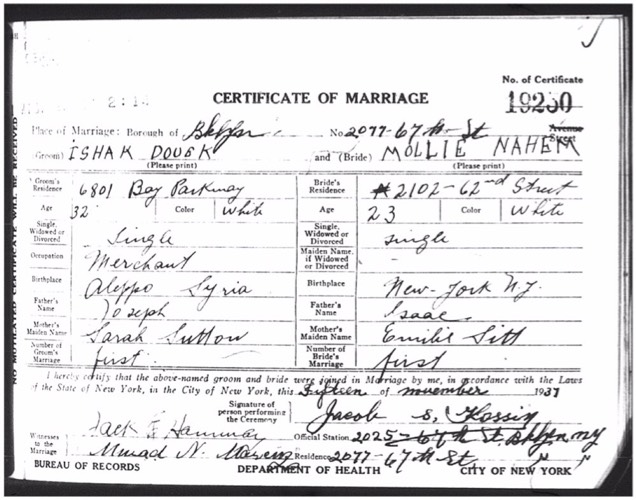 2:14
CERTIFICATE OF MARRIAGE
No. of Certificate
19250
Place of Marriage: Borough of Bklyn No. 2077-67th St Avenue Street
(Groom) ISHAK DOUEK and (Bride) MOLLIE NAHEM
(Please print) (Please print)
Groom's Residence 6801 Bay Parkway Bride's Residence #2102-62nd Street
Age 32 Color White Age 23 Color White
Single, Widowed or Divorced Single Single, Widowed or Divorced single
Occupation Merchant Maiden Name, if Widowed or Divorced
Birthplace Aleppo Syria Birthplace New-York N.Y.
Father's Name Joseph Father's Name Isaac
Mother's Maiden Name Sarah Sutton Mother's Maiden Name Emilie Sitt
Number of Groom's Marriage first Number of Bride's Marriage first
I hereby certify that the above-named groom and bride were joined in Marriage by me, in accordance with the Laws
of the State of New York, in the City of New York, this fifteen of november 1937
Signature of person performing the Ceremony Jacob S.
Witnesses to the Marriage Jack Official Station 2025-67th St Bklyn NY
Murad N. Residence 2077-67th St
BUREAU OF RECORDS DEPARTMENT OF HEALTH CITY OF NEW YORK
NO MUTILATED CERTIFICATE WILL BE RECEIVED